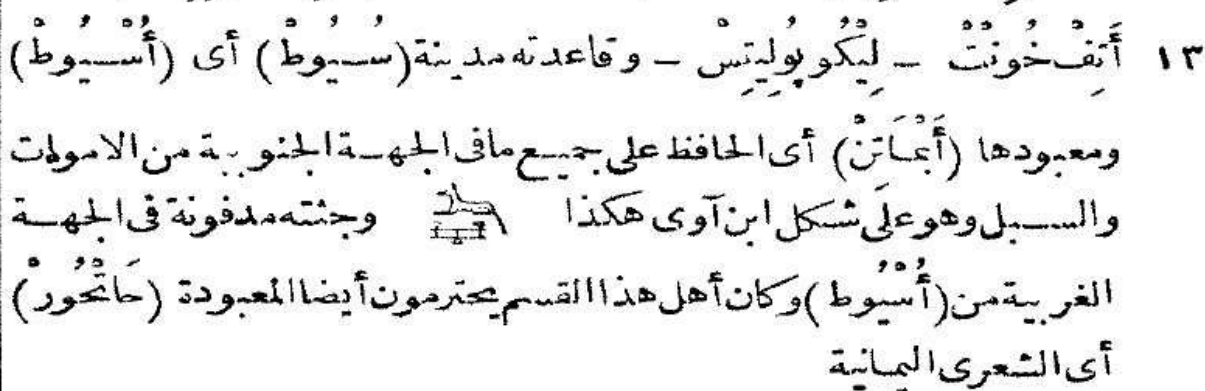 ١٣ أَتِفْ خُونْتْ – لِيْكُو پُولِيتِسْ – وقاعدته مدينة (سُيُوطْ) أى (أُسْيُوطْ)
ومعبودها (أَبْمَاتِنْ) أى الحافظ على جميع مافى الجهة الجنوبية من الاموات
والسبل وهو على شكل ابن آوى هكذا وجثته مدفونة فى الجهة
الغربية من (أُسْيُوط) وكان أهل هذا القسم يحترمون أيضا المعبودة (حَاتْحُورْ)
أى الشعرى اليمانية